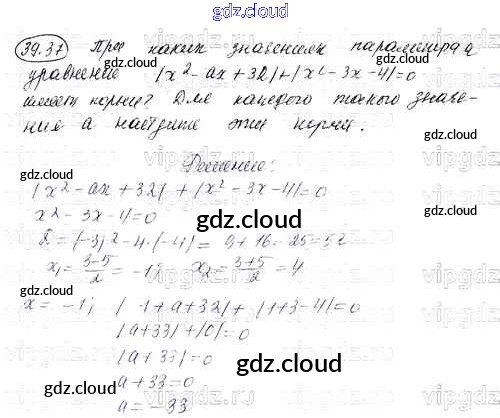 gdz.cloud
39.37 При каких значениях параметра a
уравнение |x² - ax + 32| + |x² - 3x - 4| = 0
имеет корни? Для каждого такого значе-
ния a найдите эти корни.
gdz.cloud
Решение:
|x² - ax + 32| + |x² - 3x - 4| = 0
x² - 3x - 4 = 0
gdz.cloud
D = (-3)² - 4·(-4) = 9 + 16 = 25 = 5²
x₁ = (3-5)/2 = -1; x₂ = (3+5)/2 = 4
gdz.cloud
x = -1; |-1 + a + 32| + |1 + 3 - 4| = 0
|a + 33| + |0| = 0
|a + 33| = 0
gdz.cloud
a + 33 = 0
a = -33
gdz.cloud
vipgdz.ru